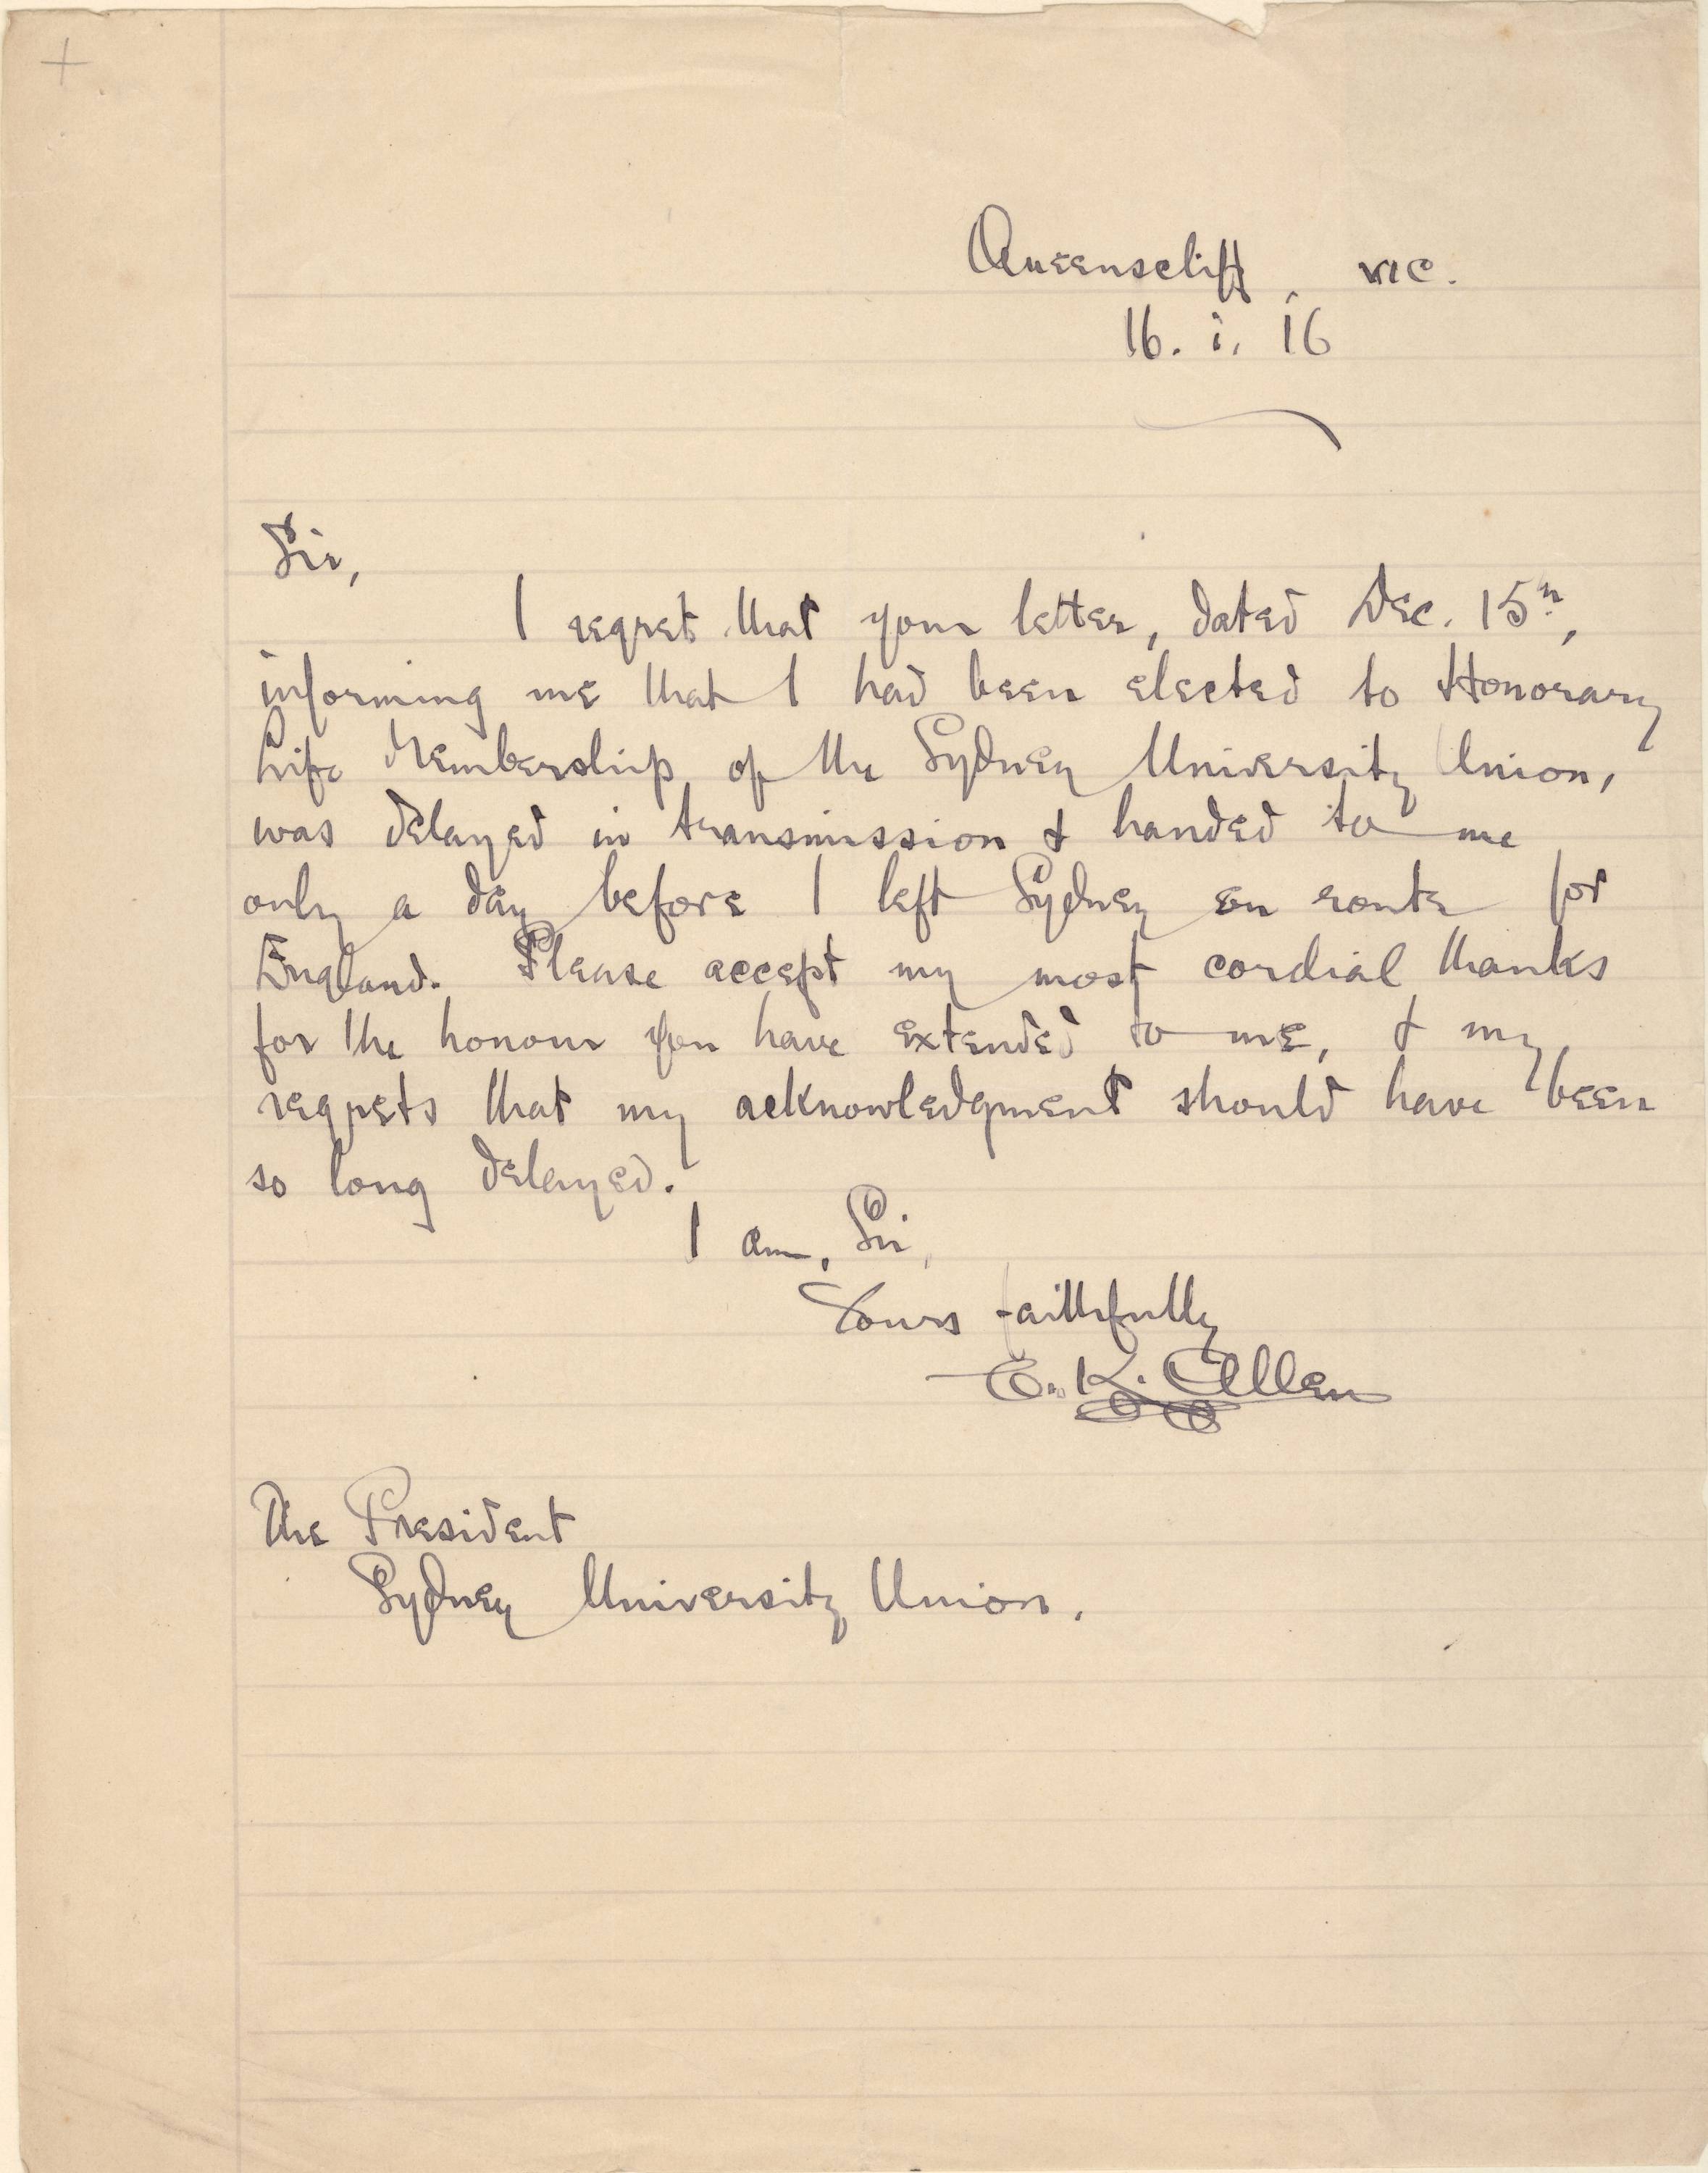 Queenscliff, Vic.
16. i. 16
Sir,
I regret that your letter, dated Dec. 15th,
informing me that I had been elected to Honorary
Life Membership of the Sydney University Union,
was delayed in transmission & handed to me
only a day before I left Sydney en route for
England. Please accept my most cordial thanks
for the honour you have extended to me, & my
regrets that my acknowledgment should have been
so long delayed.
I am, Sir,
Yours faithfully
E. K. Allen
The President
Sydney University Union.